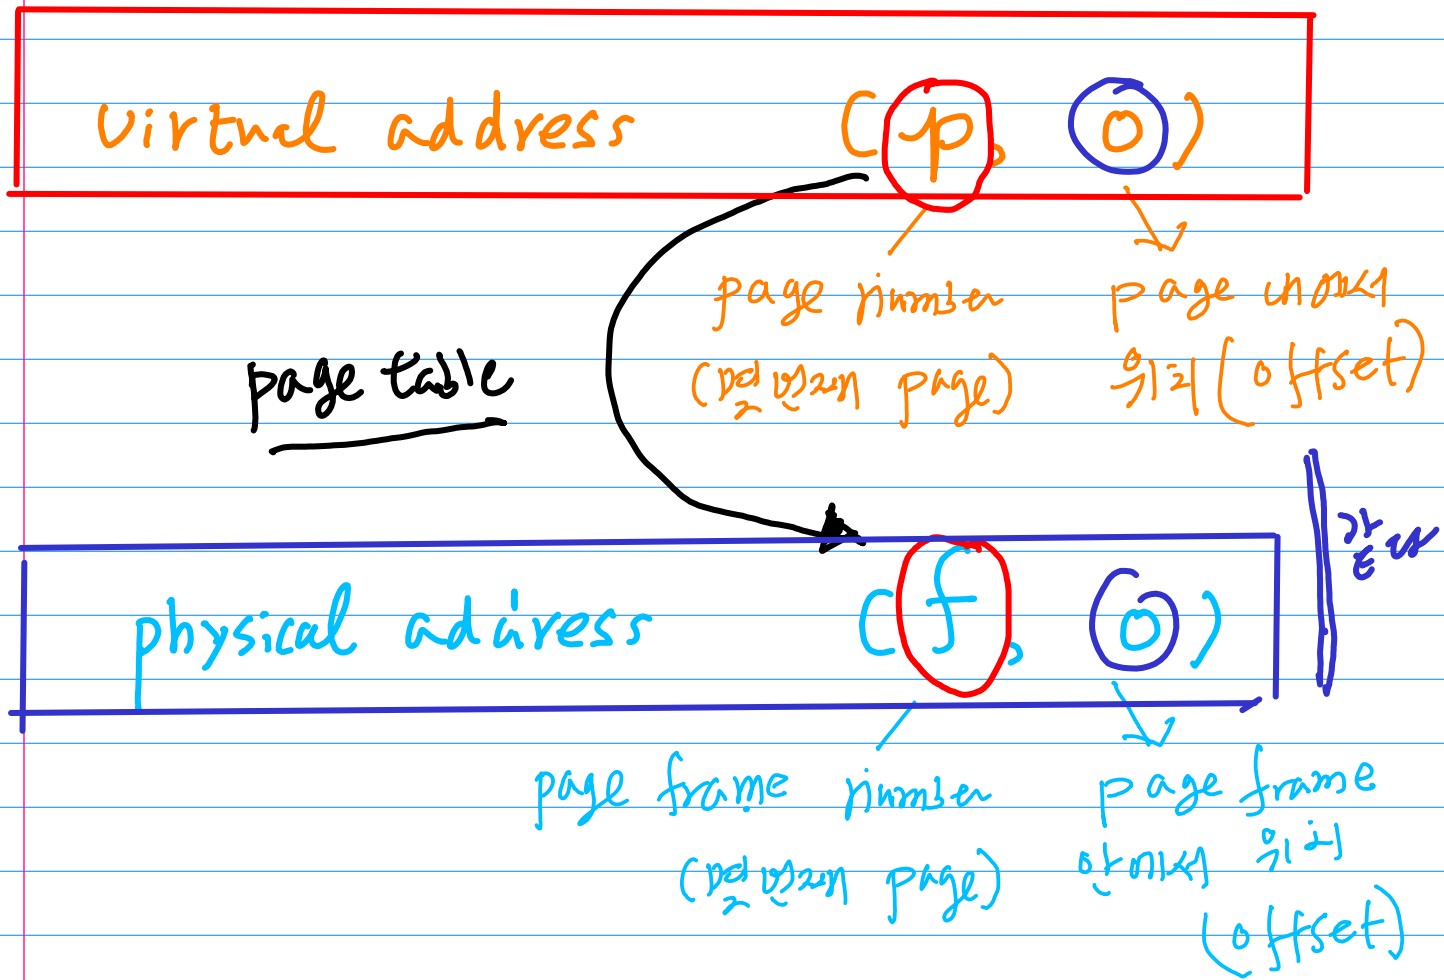 virtual address (p, o)
page number
(몇 번째 page)
page 내에서
위치 (offset)
page table
같다
physical address (f, o)
page frame number
(몇 번째 page)
page frame
안에서 위치
(offset)